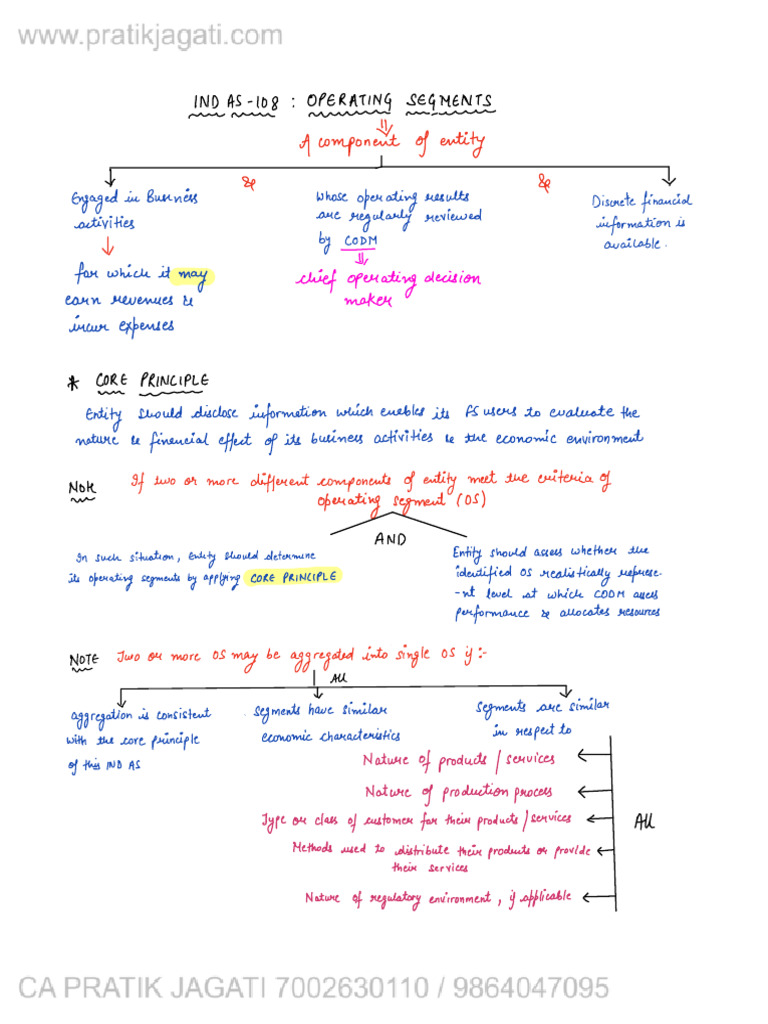 www.pratikjagati.com
IND AS-108 : OPERATING SEGMENTS
A component of entity
& &
Engaged in Business
activities
for which it may
earn revenues &
incur expenses
whose operating results
are regularly reviewed
by CODM
chief operating decision
maker
Discrete financial
information is
available.
* CORE PRINCIPLE
Entity should disclose information which enables its FS users to evaluate the
nature & financial effect of its business activities & the economic environment
Note If two or more different components of entity meet the criteria of
operating segment (OS)
AND
In such situation, Entity should determine
its operating segments by applying CORE PRINCIPLE
Entity should assess whether the
identified OS realistically represe.
-nt level at which CODM assess
performance & allocates resources
NOTE Two or more OS may be aggregated into single OS if :-
All
Aggregation is consistent
with the core principle
of this IND AS
Segments have similar
economic characteristics
Segments are similar
in respect to
Nature of products / services
Nature of production process
Type or class of customer for their products / services
All
Methods used to distribute their products or provide
their services
Nature of regulatory environment, if applicable
CA PRATIK JAGATI 7002630110 / 9864047095